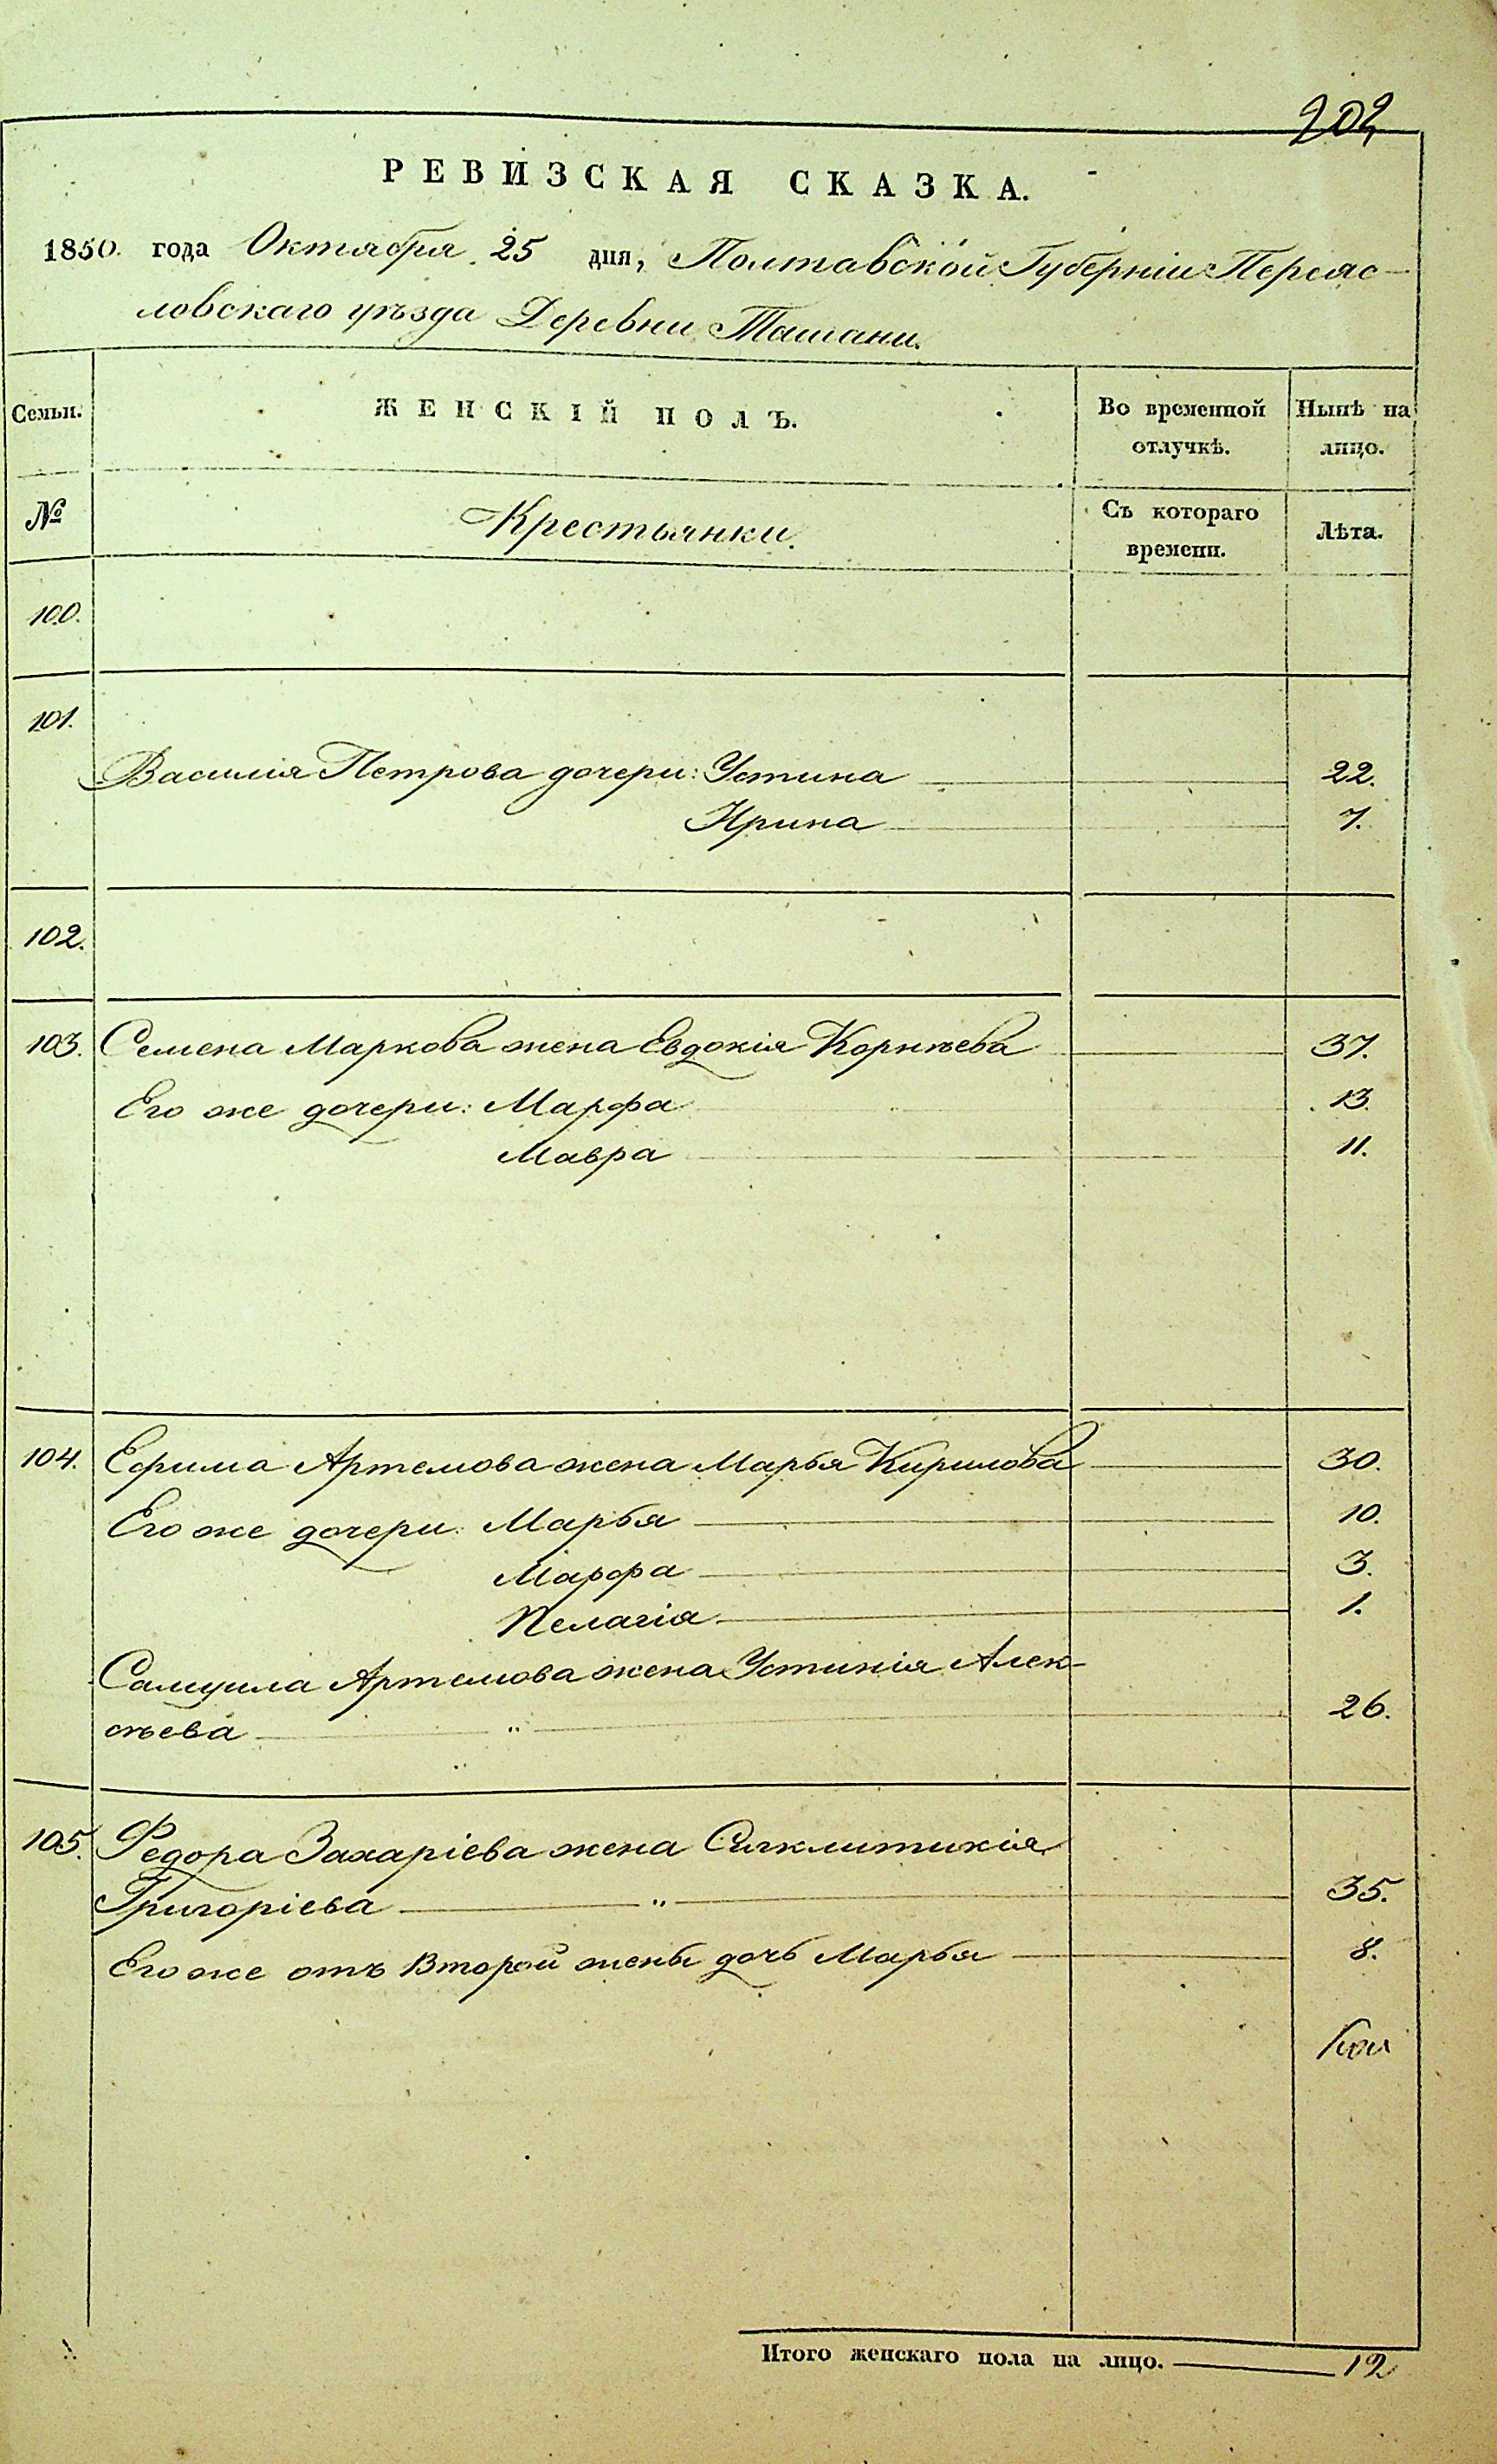 202
РЕВИЗСКАЯ СКАЗКА.
1850. года Октября 25 дня, Полтавской Губерніи Переяс-
ловскаго уѣзда Деревни Ташани.
Семьи. ЖЕНСКІЙ ПОЛЪ. Во временной отлучкѣ. Нынѣ на лицо.
№ Крестьянки. Съ котораго времени. Лѣта.
100.
101.
Василія Петрова дочери: Устина 22.
Ирина 7.
102.
103. Семена Маркова жена Евдокія Корнѣева 37.
Его же дочери: Марфа 13.
Мавра 11.
104. Ефима Артемова жена Марья Кирилова 30.
Его же дочери: Марья 10.
Марфа 3.
Пелагія 1.
Самуила Артемова жена Устинія Алек-
сѣева " 26.
105. Федора Захаріева жена Сяклитикія
Григоріева " 35.
Его же отъ Второй жены дочь Марья 8.
Итого женскаго пола на лицо. 12